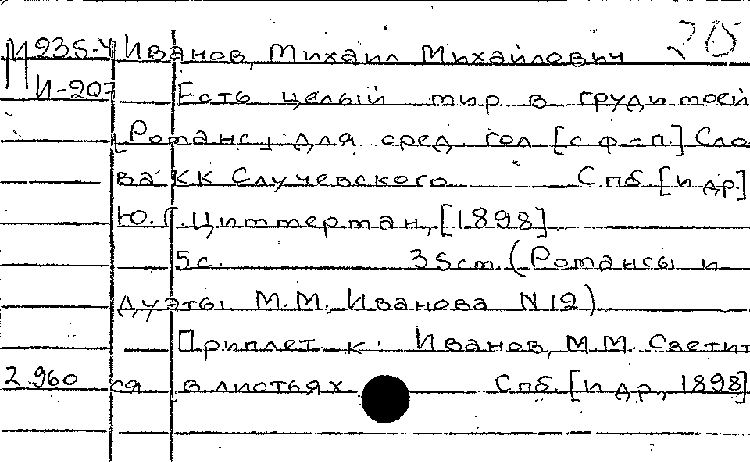 М 935-4 Иванов, Михаил Михайлович 20
И-207 Есть целый мир в груди моей
[Романс] для сред. гол. [с ф-п.] Сло
ва К К Случевского Спб. [и др.]
Ю. Г. Циммерман, [1898]
5с. 35cm. (Романсы и
дуэты М.М. Иванова N 12)
Приплет к: Иванов, М.М. Светит
2 960 ся в листьях Спб. [и др., 1898]